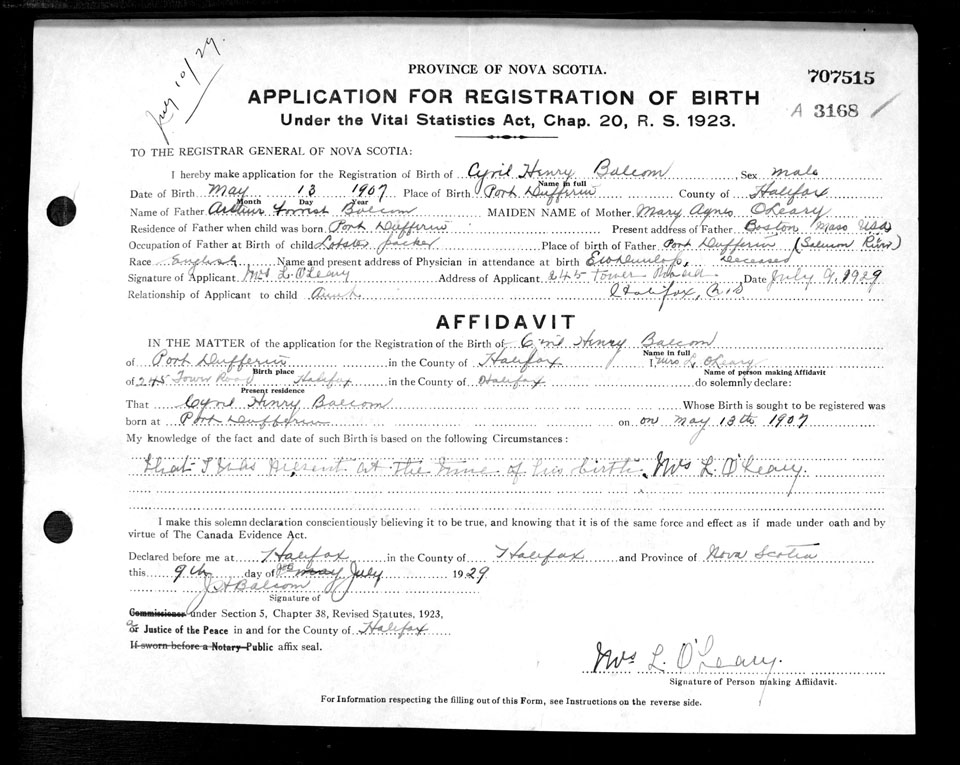 July 10/29.
PROVINCE OF NOVA SCOTIA.
707515
APPLICATION FOR REGISTRATION OF BIRTH
A 3168
Under the Vital Statistics Act, Chap. 20, R. S. 1923.
TO THE REGISTRAR GENERAL OF NOVA SCOTIA:
I hereby make application for the Registration of Birth of Cyril Henry Balcom Sex male
Name in full
Date of Birth May 13 1907 Place of Birth Port Dufferin County of Halifax
Month Day Year
Name of Father Arthur Forrest Balcom MAIDEN NAME of Mother Mary Agnes O'Leary
Residence of Father when child was born Port Dufferin Present address of Father Boston Mass USA
Occupation of Father at Birth of child Lobster packer Place of birth of Father Port Dufferin (Salmon River)
Race English Name and present address of Physician in attendance at birth Dunlop, Deceased
Signature of Applicant Mrs L. O'Leary Address of Applicant 245 Tower Road Date July 9, 1929
Relationship of Applicant to child Aunt Halifax, N.S
AFFIDAVIT
IN THE MATTER of the application for the Registration of the Birth of Cyril Henry Balcom
Name in full
of Port Dufferin in the County of Halifax I, Mrs L. O'Leary
Birth place Name of person making Affidavit
of 245 Tower Road Halifax in the County of Halifax do solemnly declare:
Present residence
That Cyril Henry Balcom Whose Birth is sought to be registered was
born at Port Dufferin on on May 13th 1907
My knowledge of the fact and date of such Birth is based on the following Circumstances:
that I was present at the time of his birth. Mrs L. O'Leary.
I make this solemn declaration conscientiously believing it to be true, and knowing that it is of the same force and effect as if made under oath and by
virtue of The Canada Evidence Act.
Declared before me at Halifax in the County of Halifax and Province of Nova Scotia
this 9th day of JHB May July 1929
J H Balcom
Signature of
Commissioner under Section 5, Chapter 38, Revised Statutes, 1923,
or Justice of the Peace in and for the County of Halifax
If sworn before a Notary Public affix seal.
Mrs L. O'Leary.
Signature of Person making Affidavit.
For Information respecting the filling out of this Form, see Instructions on the reverse side.